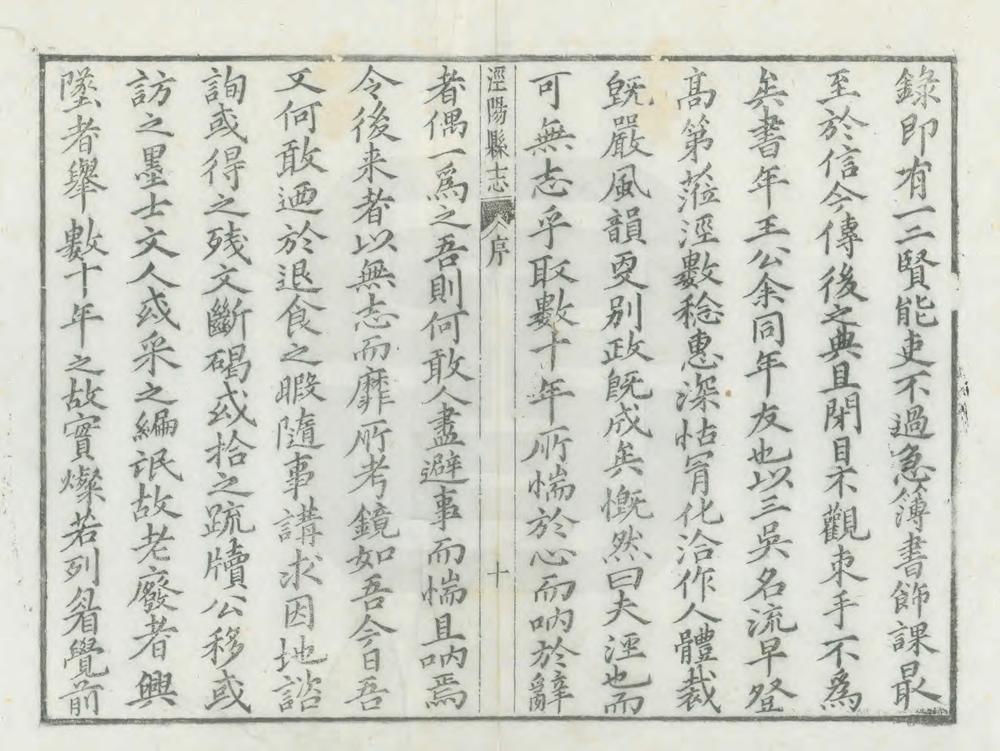 錄即有一二賢能吏不過急簿書飾課最
至於信今傳後之典且閉目不觀束手不為
矣書年王公余同年友也以三吳名流早登
高第蒞涇數稔惠深怙冐化洽作人體裁
旣嚴風韻夐别政旣成矣慨然曰夫涇也而
可無志乎取數十年所惴於心而吶於辭
涇陽縣志 序 十
者偶一爲之吾則何敢人盡避事而惴且吶焉
令後来者以無志而靡所考鏡如吾今日吾
又何敢迺於退食之暇隨事講求因地諮
詢或得之残文斷碣或拾之䟽牘公移或
訪之墨士文人或采之編氓故老廢者興
墜者舉數十年之故實燦若列眉覺前